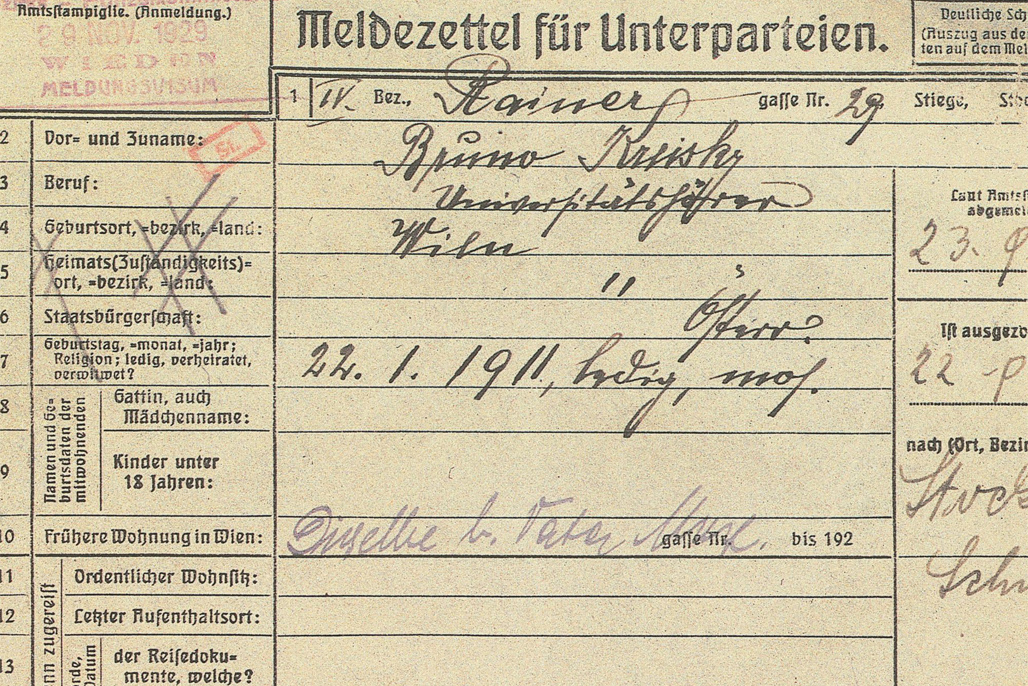 Amtsstampiglie. (Anmeldung.)
29 NOV. 1929
WIEDEN
MELDUNGSVISUM
Meldezettel für Unterparteien.
Deutliche Sch
(Auszug aus de
ten auf dem Mel
1 IV. Bez., Rainer gasse Nr. 29 Stiege, Sto
2 Vor- und Zuname: Bruno Kreisky
3 Beruf: Universitätshörer
4 Geburtsort, -bezirk, -land: Wien
5 Heimats(Zuständigkeits)-
ort, -bezirk, -land: "
6 Staatsbürgerschaft: Österr.
7 Geburtstag, -monat, -jahr;
Religion; ledig, verheiratet,
verwitwet? 22. 1. 1911, ledig, mos.
8 Namen und Ge-
burtsdaten der
mitwohnenden
Gattin, auch
Mädchenname:
9 Kinder unter
18 Jahren:
10 Frühere Wohnung in Wien: Dieselbe b. Vater Max. gasse Nr. bis 192
11 Ordentlicher Wohnsitz:
12 Letzter Aufenthaltsort:
13 der Reisedoku-
mente, welche?
nn zugereist
rde,
Datum
Laut Amts
abgemel
23.
Ist ausgezo
22
nach (Ort, Bezir
Stock
Sch